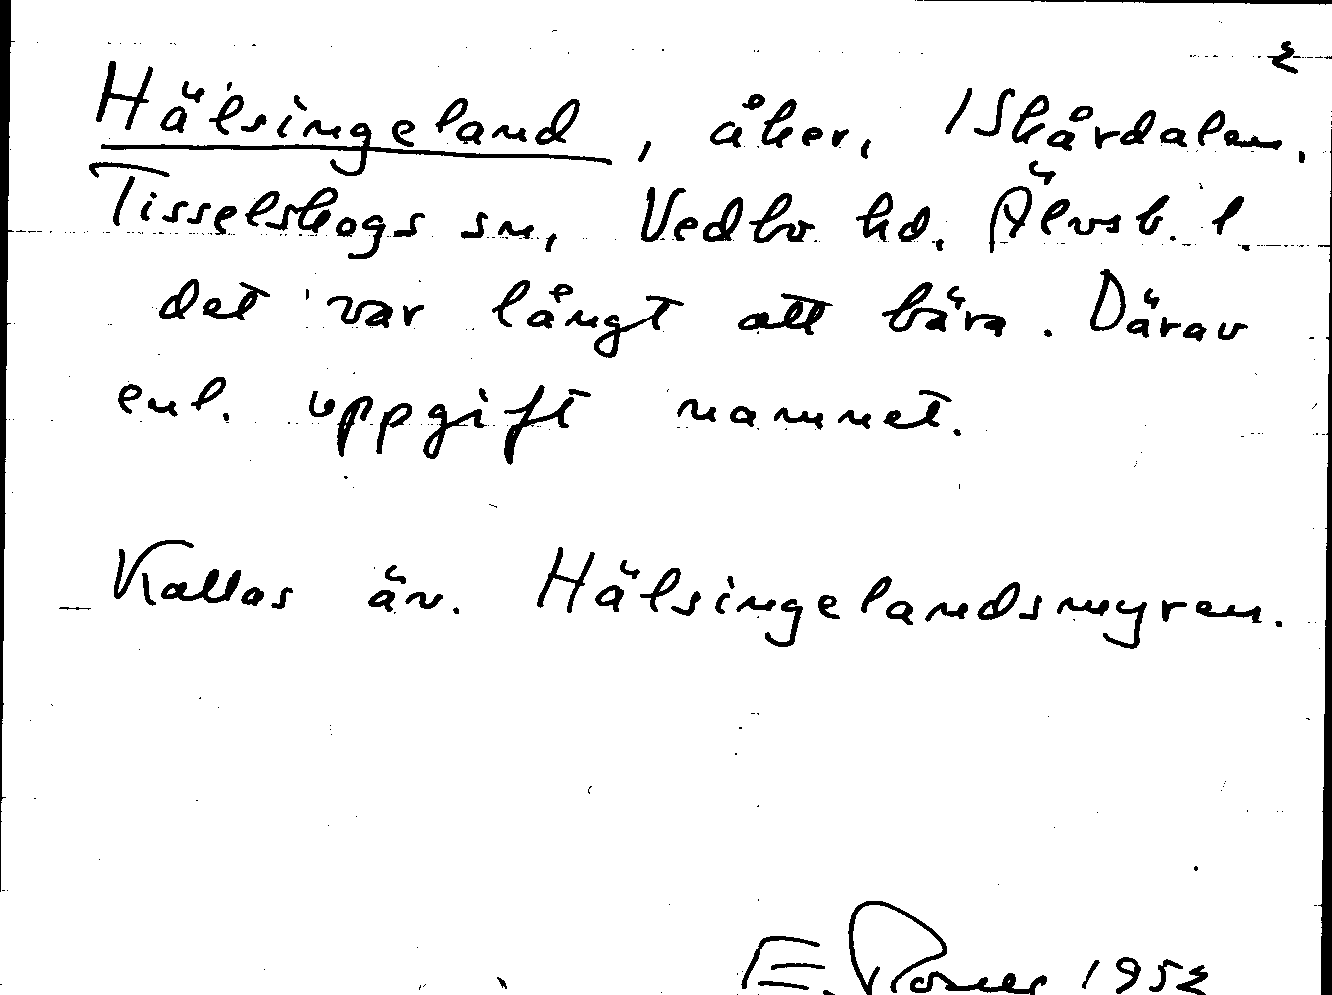 2
Hälsingeland, åker, 1 Skårdalen,
Tisselskogs sn, Vedbo hd. Älvsb. l.
det var långt att bära. Därav
enl. uppgift namnet.
Kallas äv. Hälsingelandsmyren.
E. 1952